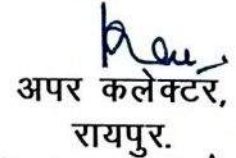 अपर कलेक्टर,
रायपुर.